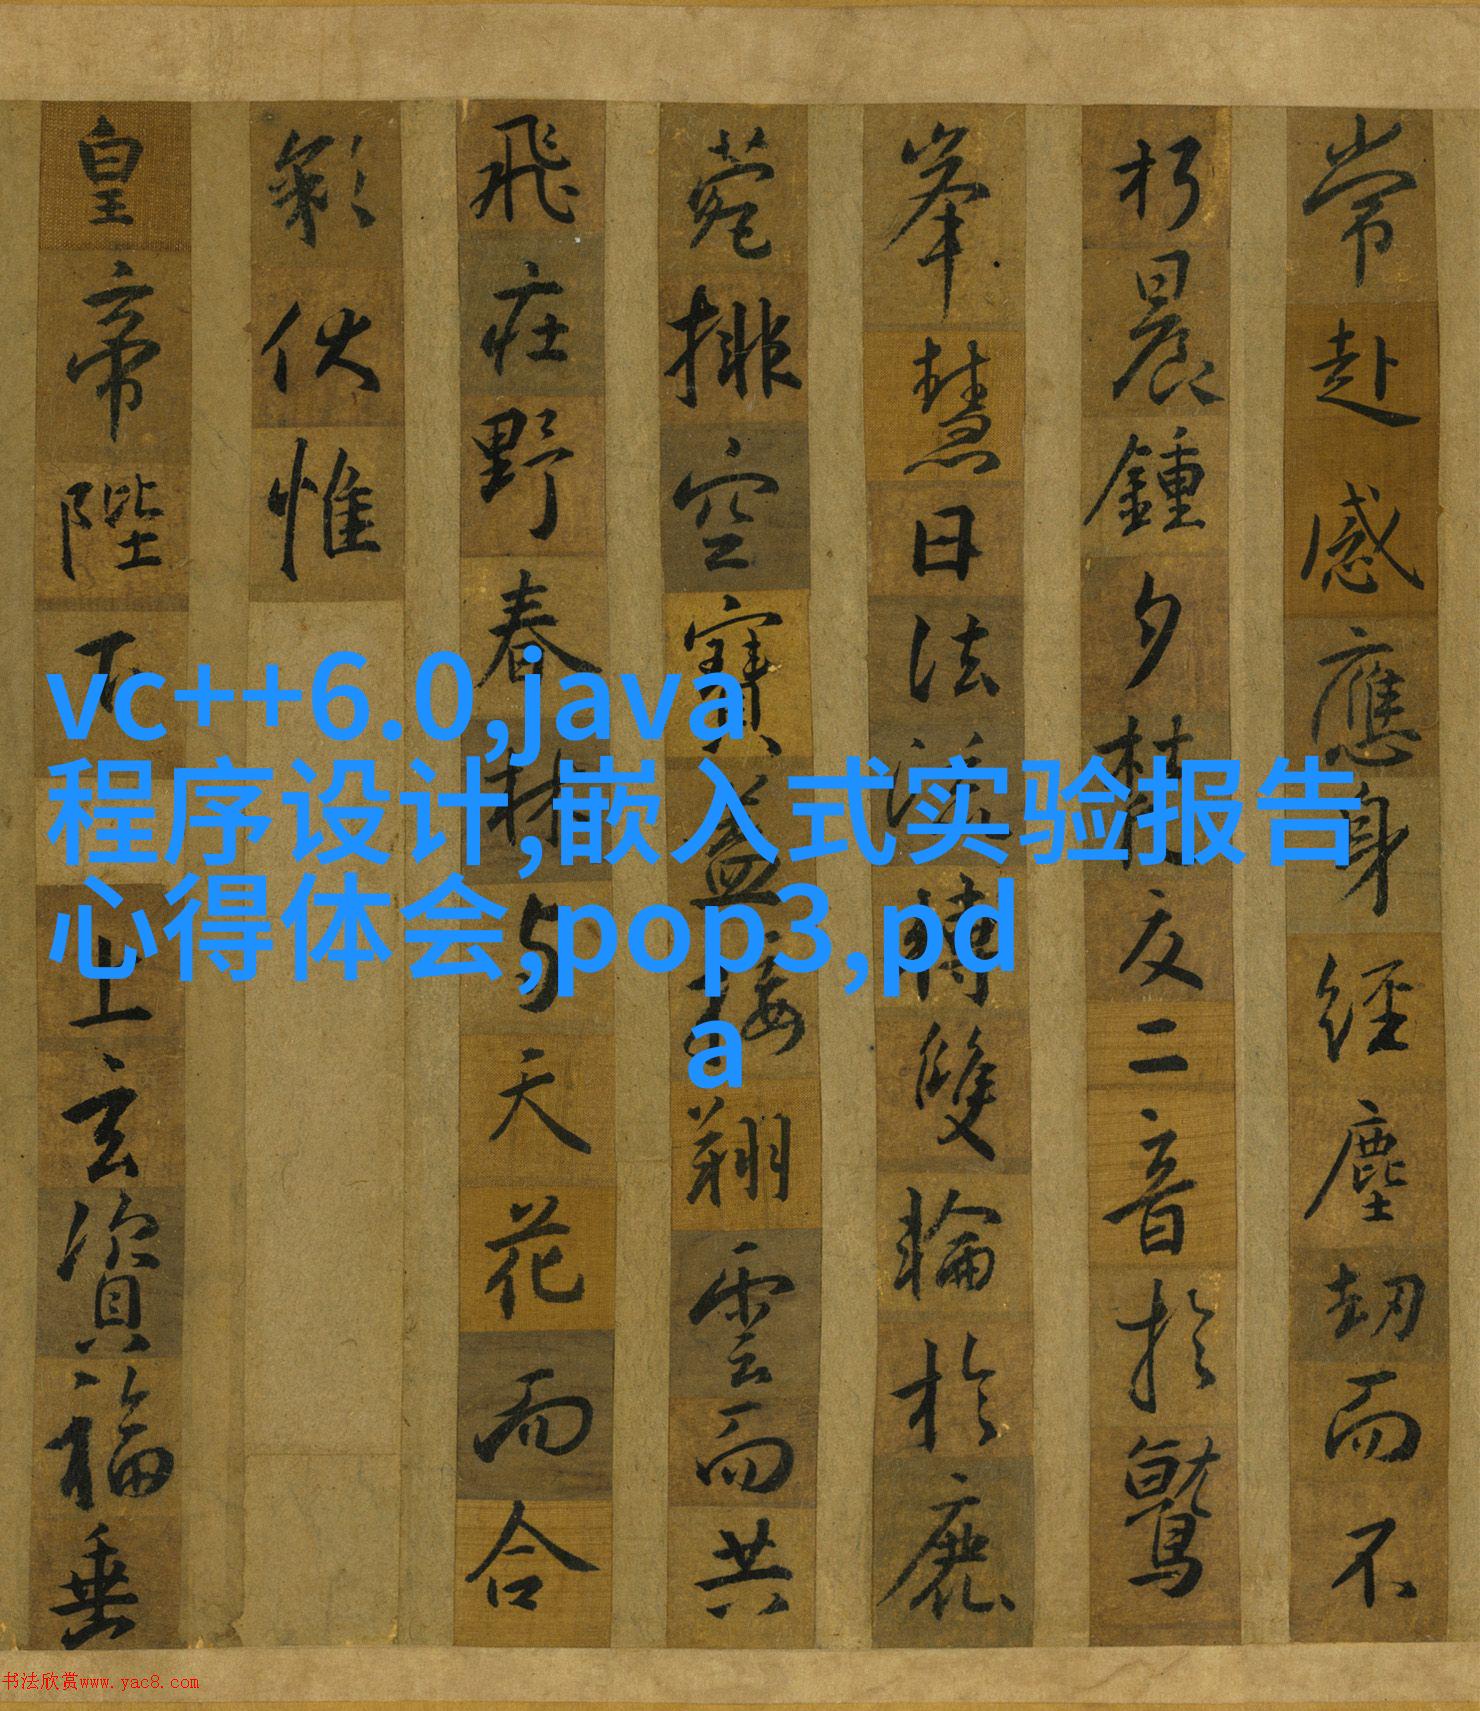 常赴感應身經塵劫而不
朽晨鍾夕梵交二音於鷲
峯慧日法流轉雙輪於鹿
菀排空寶蓋接翔雲而共
飛莊野春林与天花而合
彩伏惟
皇帝陛下上玄資福垂
vc++6.0,java
程序设计,嵌入式实验报告
心得体会,pop3,pd
a
书法欣赏www.yac8.com